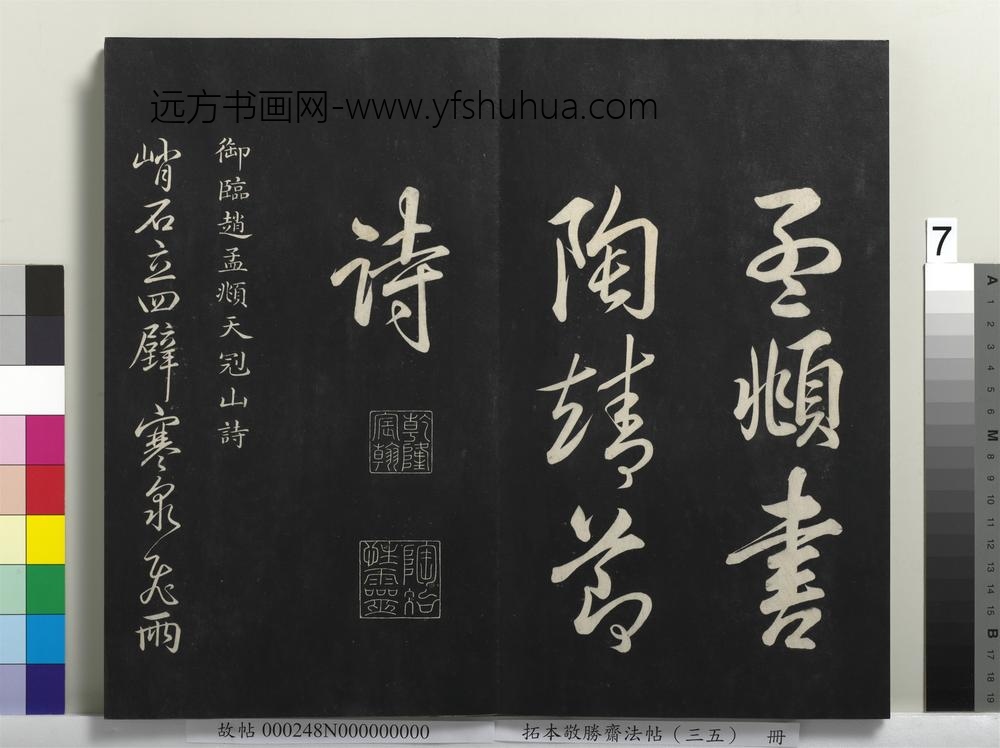 远方书画网-www.yfshuhua.com
孟頫書
陶靖節
詩
乾隆宸翰
陶冶性靈
御臨趙孟頫天冠山詩
峭石立四壁寒泉飛雨
7
A 1 2 3 4 5 6 M 8 9 10 11 12 13 14 15 B 17 18 19
故帖 000248N000000000
拓本敬勝齋法帖（三五） 冊